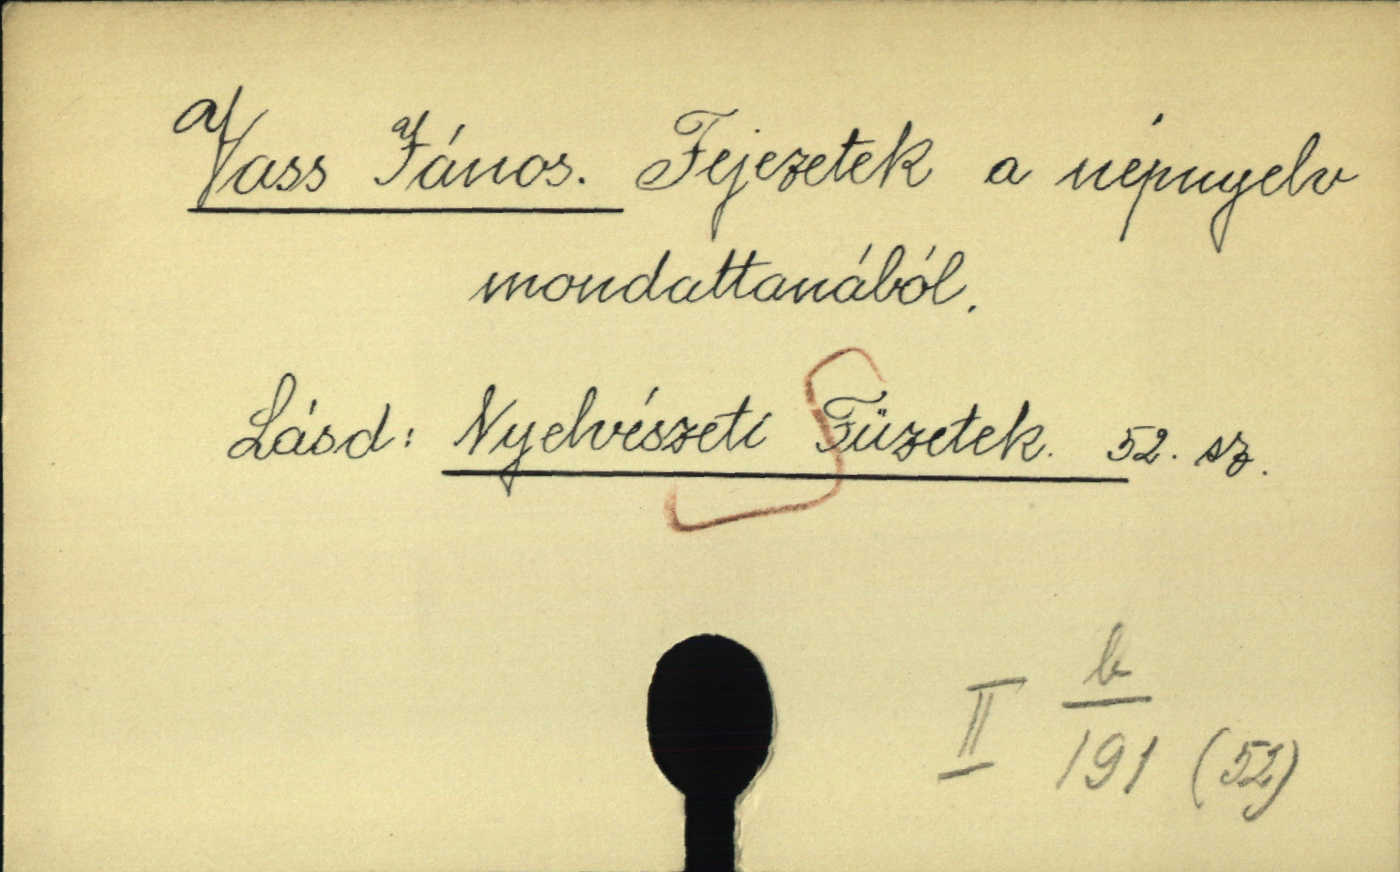 Vass János. Fejezetek a népnyelv
mondattanából.
Lásd: Nyelvészeti Füzetek. 52. sz.
II b/191 (52)